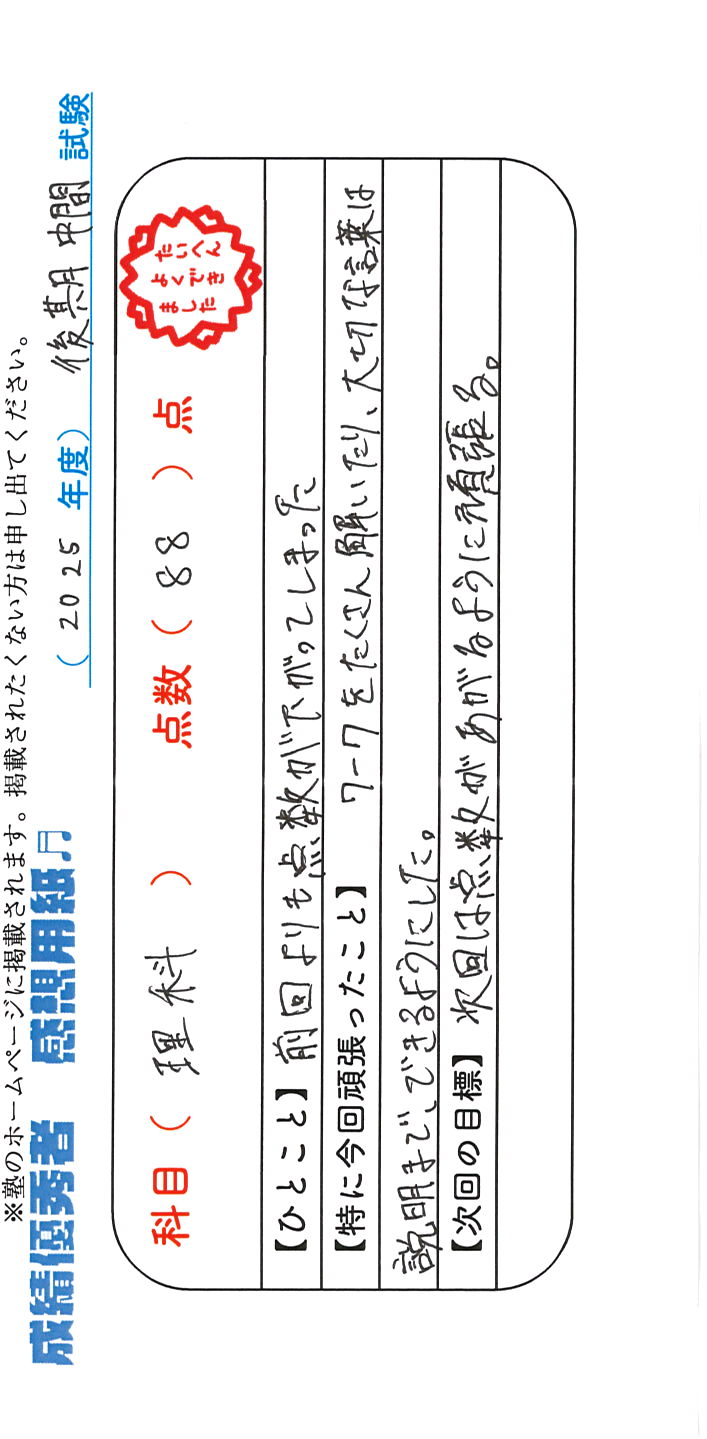 ※塾のホームページに掲載されます。掲載されたくない方は申し出てください。
成績優秀者 感想用紙♫
(2025 年度) 後期中間 試験
科目( 理科 ) 点数( 88 )点
たいへん
よくでき
ました
【ひとこと】前回よりも点数が下がってしまった
【特に今回頑張ったこと】ワークをたくさん解いたり、大切な言葉は
説明まで、できるようにした。
【次回の目標】次回は点数があがるように頑張る。